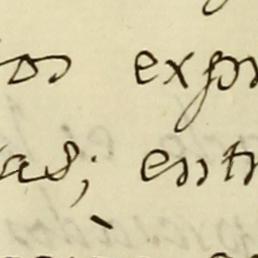 los expr
as; entr